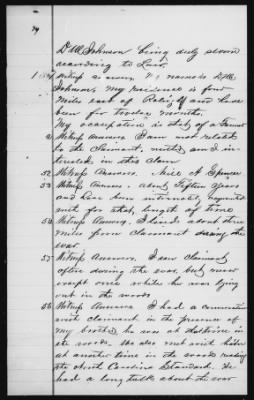 D W Johnson being duly sworn
according to Law,
Witness answers My name is D W
Johnson, my residence is four
miles east of Raleigh and have
been for twelve months.
My occupation is that of a Farmer
2 Witness Answers I am not related
to the Claimant, neither am I in-
terested in this claim
52 Witness Answers. Alice A Spencer
53 Witness Answers. About Fifteen years
and have been intimately acquainted
with for that length of time
54 Witness Answers. I lived about three
miles from Claimant during the
war
55 Witness Answers. I saw Claimant
often during the war but never
except once while he was lying
out in the woods
56 Witness Answers I had a conversation
with claimant in the presence of
my brother he was at that time in
the woods. We also met with him
at another time in the woods reading
the North Carolina Standard. We
had a long talk about the war